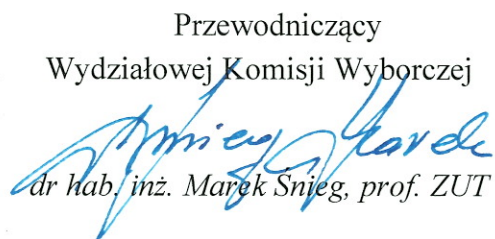 Przewodniczący
Wydziałowej Komisji Wyborczej
Śnieg Marek
dr hab. inż. Marek Śnieg, prof. ZUT